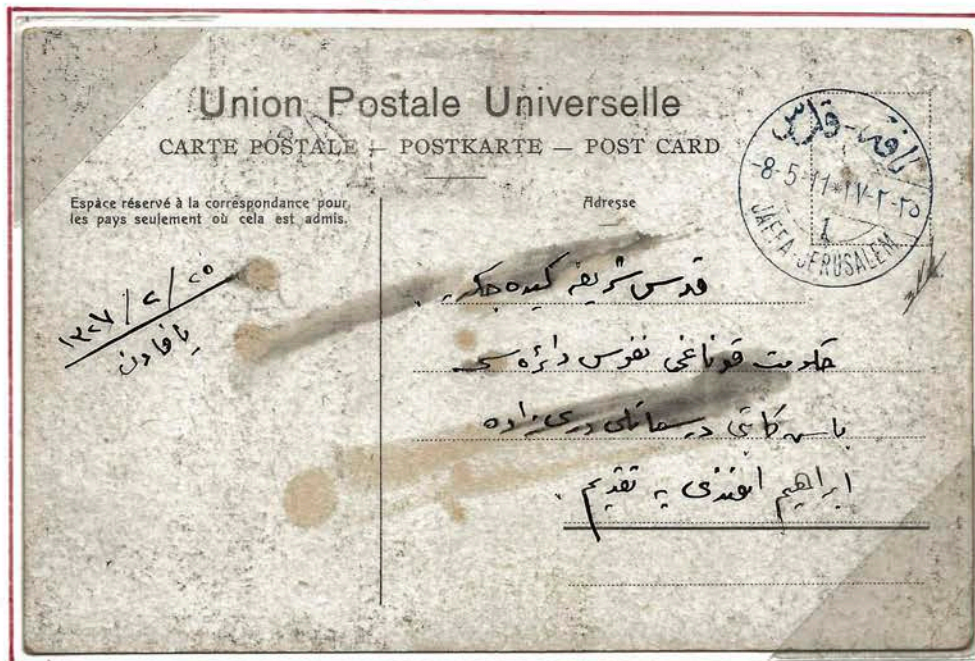 Union Postale Universelle
CARTE POSTALE — POSTKARTE — POST CARD
Espace réservé à la correspondance pour
les pays seulement où cela est admis.
Adresse
يافه - قدس
-8-5-11 * ٢٧-٢-٢٥
JAFFA-JERUSALEM
٢٥ / ٢ / ١٣٢٧
يافادن
قدس شريفه كيده جكدر
حكومت قوناغى نفوس دائره سى
باش كاتبى درى زاده
ابراهيم افندى يه تقديم